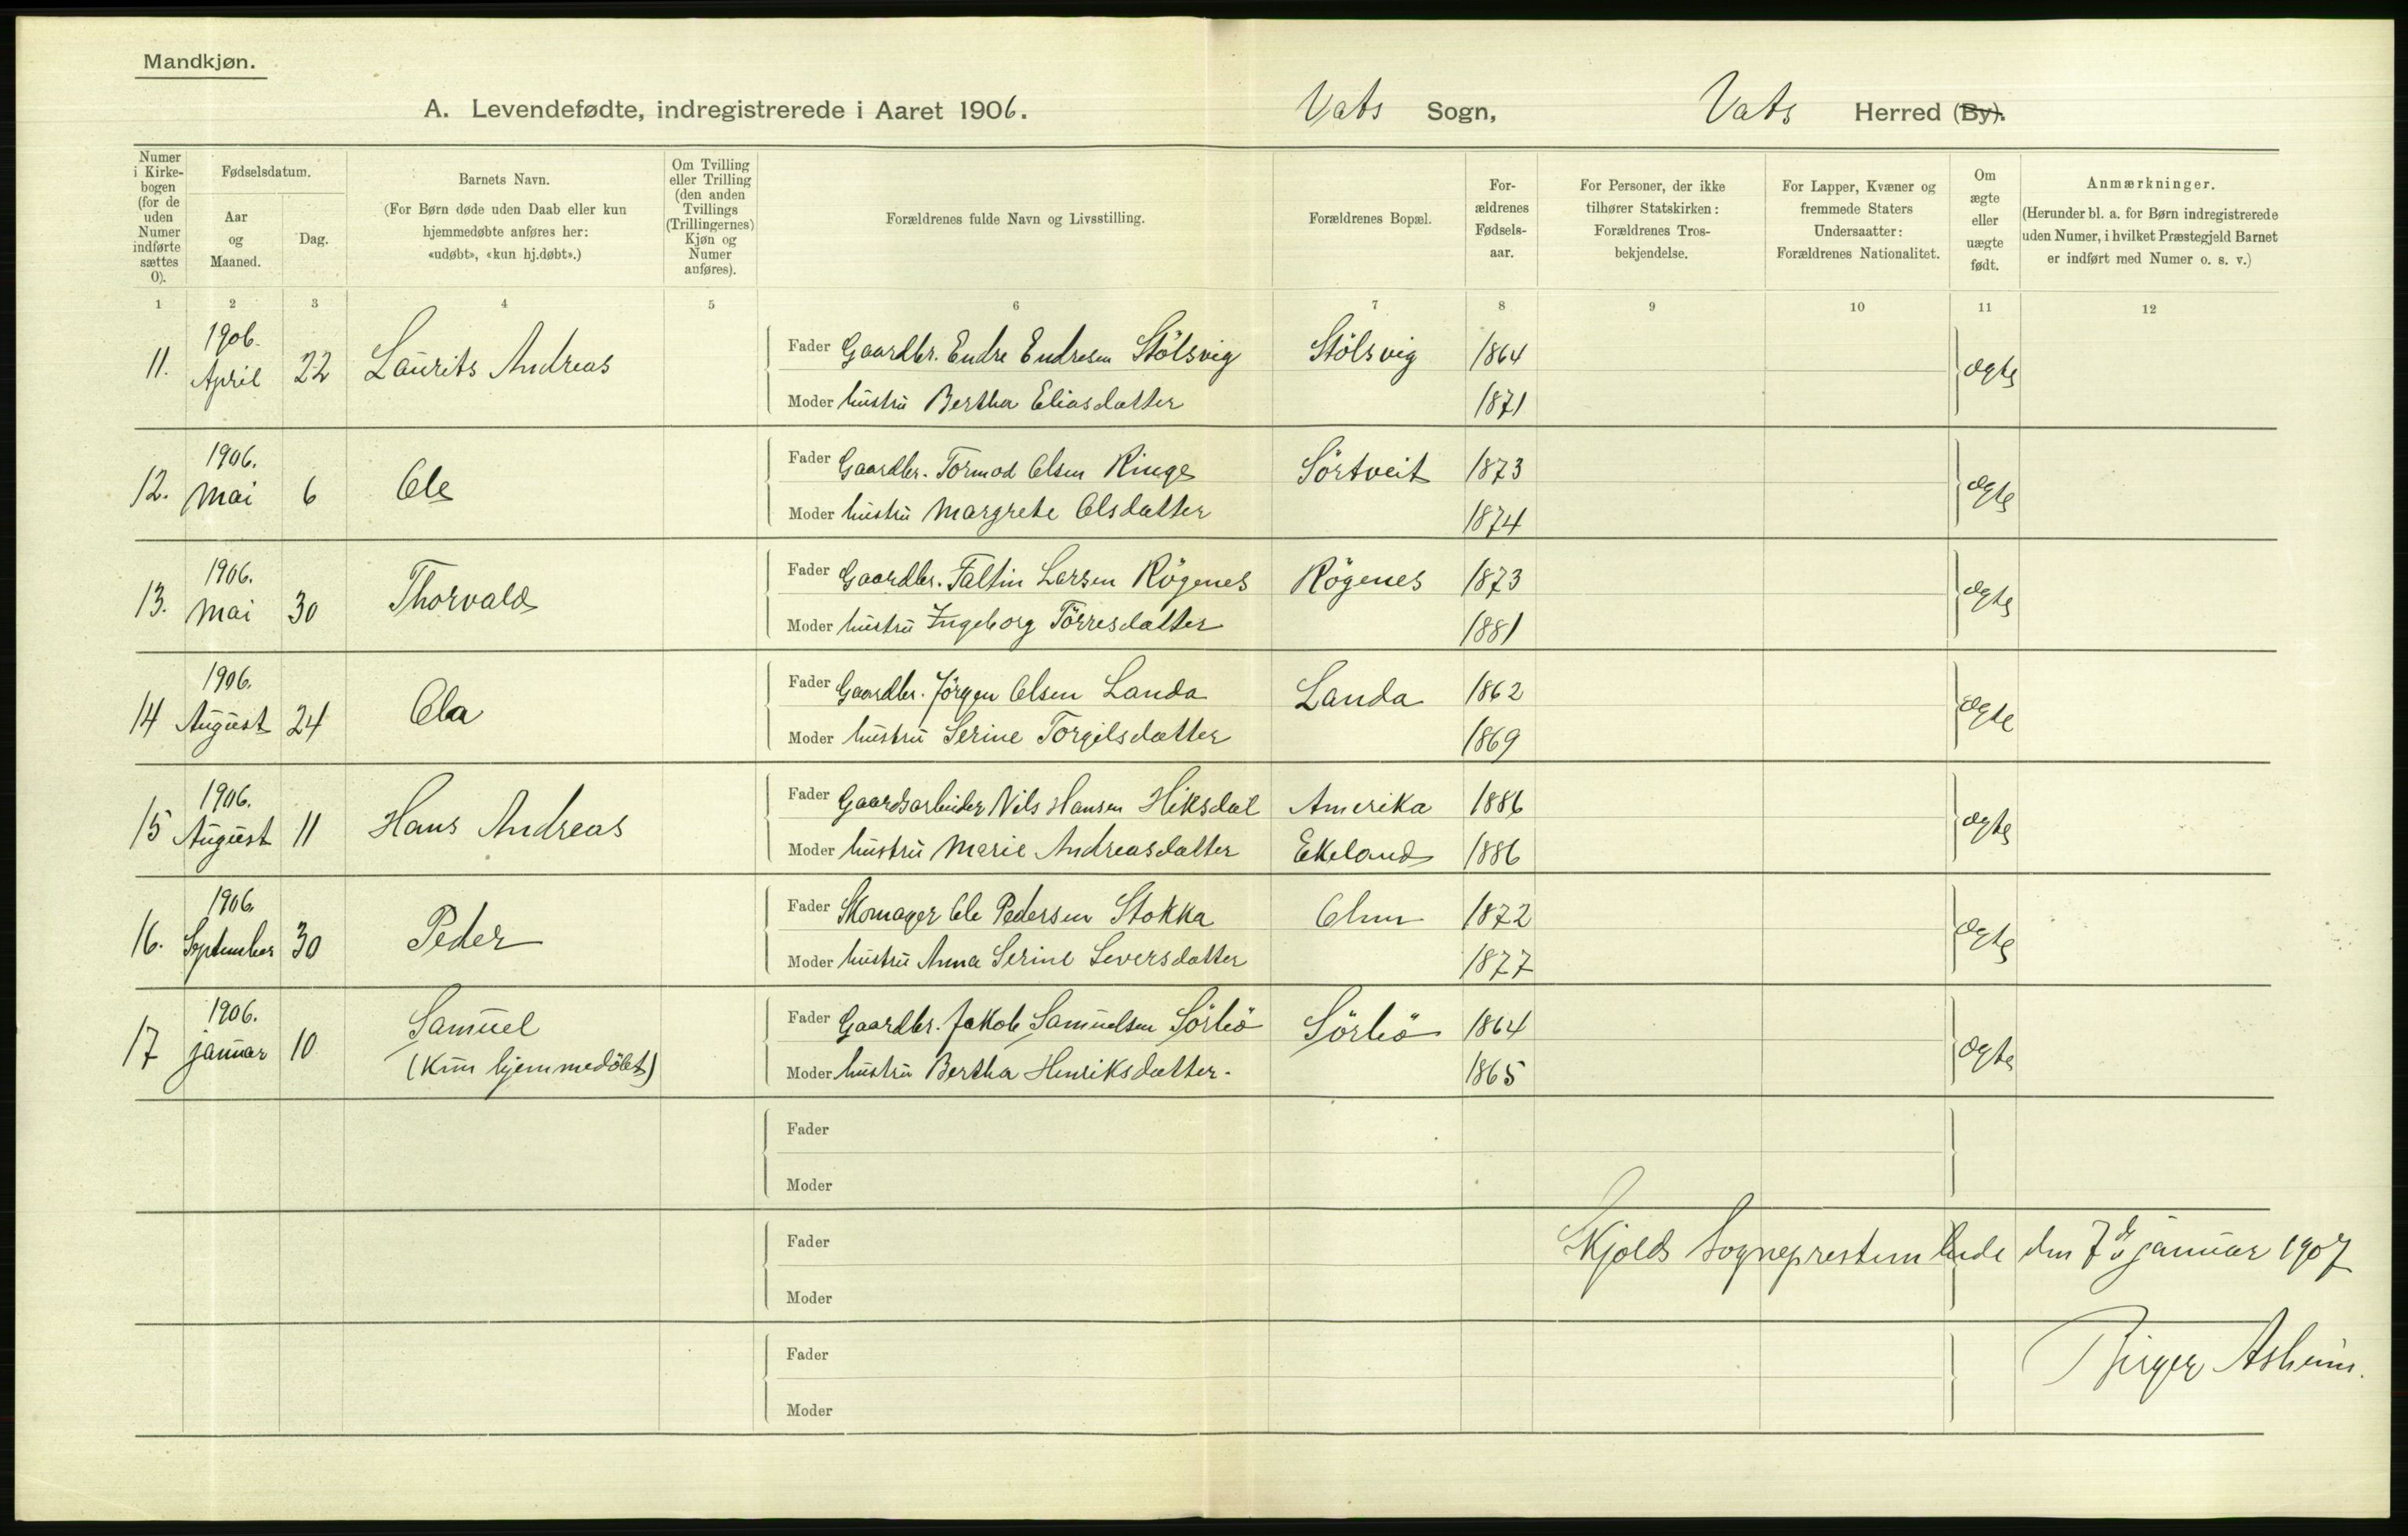 Mandkjøn.
A. Levendefødte, indregistrerede i Aaret 1906. Vats Sogn, Vats Herred (By).
Numer i Kirkebogen (for de uden Numer indførte sættes 0).
Fødselsdatum.
Aar og Maaned.
Dag.
Barnets Navn.
(For Børn døde uden Daab eller kun hjemmedøbte anføres her: «udøbt», «kun hj.døbt».)
Om Tvilling eller Trilling (den anden Tvillings (Trillingernes) Kjøn og Numer anføres).
Forældrenes fulde Navn og Livsstilling.
Forældrenes Bopæl.
Forældrenes Fødselsaar.
For Personer, der ikke tilhører Statskirken: Forældrenes Trosbekjendelse.
For Lapper, Kvæner og fremmede Staters Undersaatter: Forældrenes Nationalitet.
Om ægte eller uægte født.
Anmærkninger.
(Herunder bl. a. for Børn indregistrerede uden Numer, i hvilket Præstegjeld Barnet er indført med Numer o. s. v.)
1 2 3 4 5 6 7 8 9 10 11 12
11. 1906. April 22 Laurits Andreas Fader Gaardbr. Endre Endresen Stölsvig Stölsvig 1864 ægte
Moder hustru Bertha Eliasdatter 1871
12. 1906. Mai 6 Ole Fader Gaardbr. Tormod Olsen Ringe Sörtveit 1873 ægte
Moder hustru Margrete Olsdatter 1874
13. 1906. Mai 30 Thorvald Fader Gaardbr. Faltin Larsen Rögenes Rögenes 1873 ægte
Moder hustru Ingeborg Törresdatter 1881
14 1906. August 24 Ola Fader Gaardbr. Jörgen Olsen Landa Landa 1862 ægte
Moder hustru Serine Torgilsdatter 1869
15 1906. August 11 Hans Andreas Fader Gaardsarbeider Nils Hansen Hiksdal Amerika 1886 ægte
Moder hustru Marie Andreasdatter Ekeland 1886
16. 1906. September 30 Peder Fader Skomager Ole Pedersen Stokka 1872 ægte
Moder hustru Anna Serine Seversdatter 1877
17 1906. januar 10 Samuel Fader Gaardbr. Jakob Samuelsen Sörbö Sörbö 1864 ægte
(Kun hjemmedöbt) Moder hustru Bertha Henriksdatter. 1865
Fader
Moder
Fader
Skjolds Sogneprestembede den 7de januar 1907
Moder
Fader
Birger Asheim.
Moder